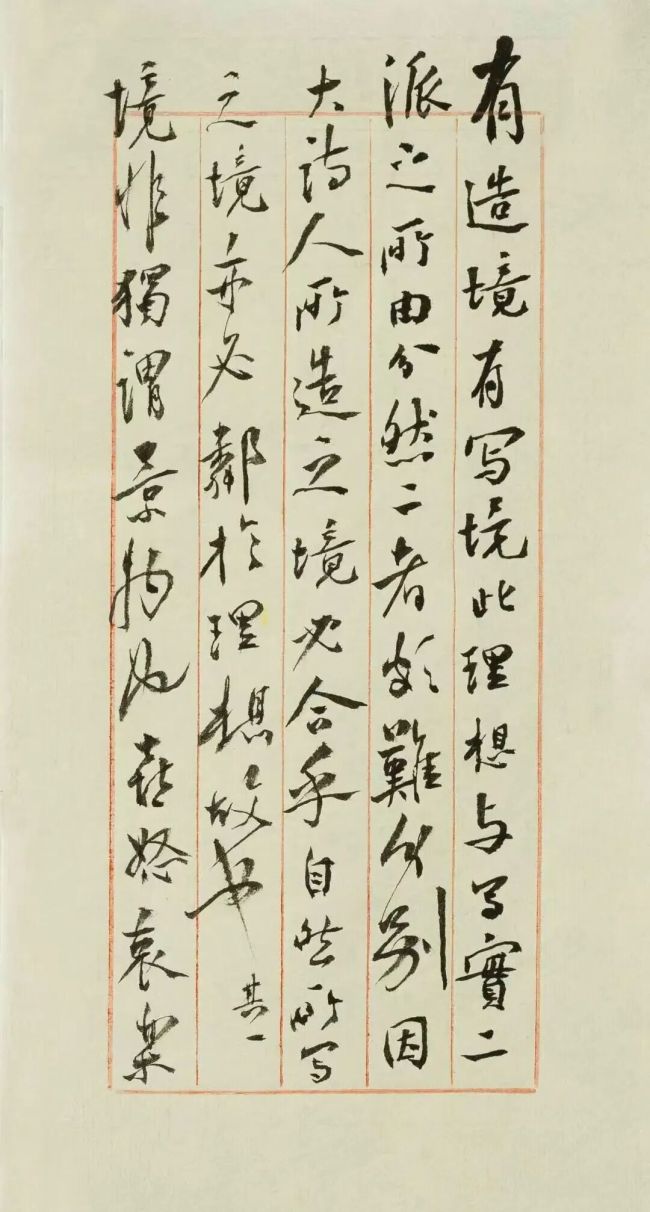 有造境有写境此理想与写實二
派之所由分然二者頗難分别因
大詩人所造之境必合乎自然所写
之境亦必鄰於理想故也 其一
境非獨謂景物也喜怒哀樂